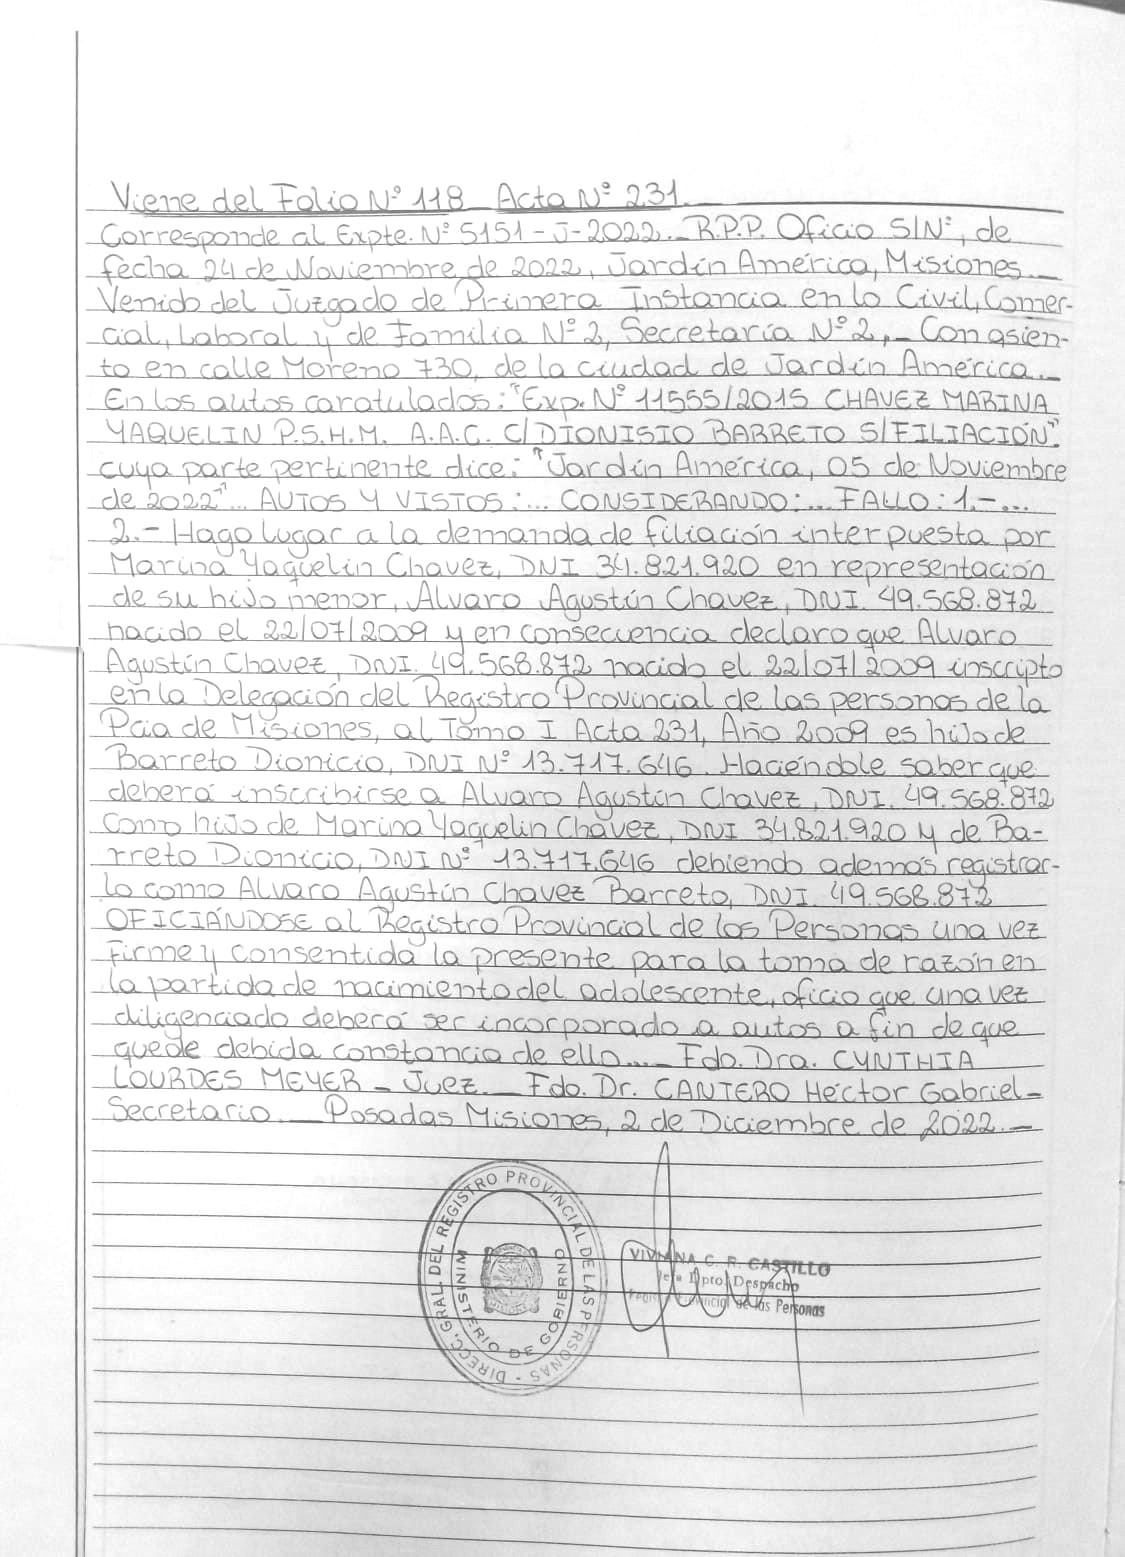 Viene del Folio Nº 118 Acta Nº 231.
Corresponde al Expte. Nº 5151-J-2022._ R.P.P. Oficio S/Nº, de
fecha 24 de Noviembre de 2022, Jardín América, Misiones._
Venido del Juzgado de Primera Instancia en lo Civil, Comer-
cial, Laboral y de Familia Nº 2, Secretaría Nº 2,_ Con asien-
to en calle Moreno 730, de la ciudad de Jardín América._
En los autos caratulados: "Exp. Nº 11555/2015 CHAVEZ MARINA
YAQUELIN P.S.H.M. A.A.C. C/ DIONISIO BARRETO S/FILIACIÓN"
cuya parte pertinente dice: "Jardín América, 05 de Noviembre
de 2022"... AUTOS Y VISTOS:... CONSIDERANDO:... FALLO: 1.-...
2.- Hago lugar a la demanda de filiación interpuesta por
Marina Yaquelin Chavez, DNI 34.821.920 en representación
de su hijo menor, Alvaro Agustín Chavez, DNI. 49.568.872
nacido el 22/07/2009 y en consecuencia declaro que Alvaro
Agustín Chavez, DNI. 49.568.872 nacido el 22/07/2009 inscripto
en la Delegación del Registro Provincial de las personas de la
Pcia de Misiones, al Tomo I Acta 231, Año 2009 es hijo de
Barreto Dionicio, DNI Nº 13.717.646. Haciéndole saber que
deberá inscribirse a Alvaro Agustín Chavez, DNI. 49.568.872
Como hijo de Marina Yaquelin Chávez, DNI 34.821.920 y de Ba-
rreto Dionicio, DNI Nº 13.717.646 debiendo además registrar-
lo como Alvaro Agustín Chavez Barreto, DNI. 49.568.872
OFICIÁNDOSE al Registro Provincial de las Personas una vez
Firme y consentida la presente para la toma de razón en
la partida de nacimiento del adolescente, oficio que una vez
diligenciado deberá ser incorporado a autos a fin de que
quede debida constancia de ello... Fdo. Dra. CYNTHIA
LOURDES MEYER - Juez._ Fdo. Dr. CANTERO Héctor Gabriel-
Secretario._ Posadas Misiones, 2 de Diciembre de 2022.-
DIRECC. GRAL. DEL REGISTRO PROVINCIAL DE LAS PERSONAS
MINISTERIO DE GOBIERNO
VIVIANA C. R. CASTILLO
Despacho
de las Personas